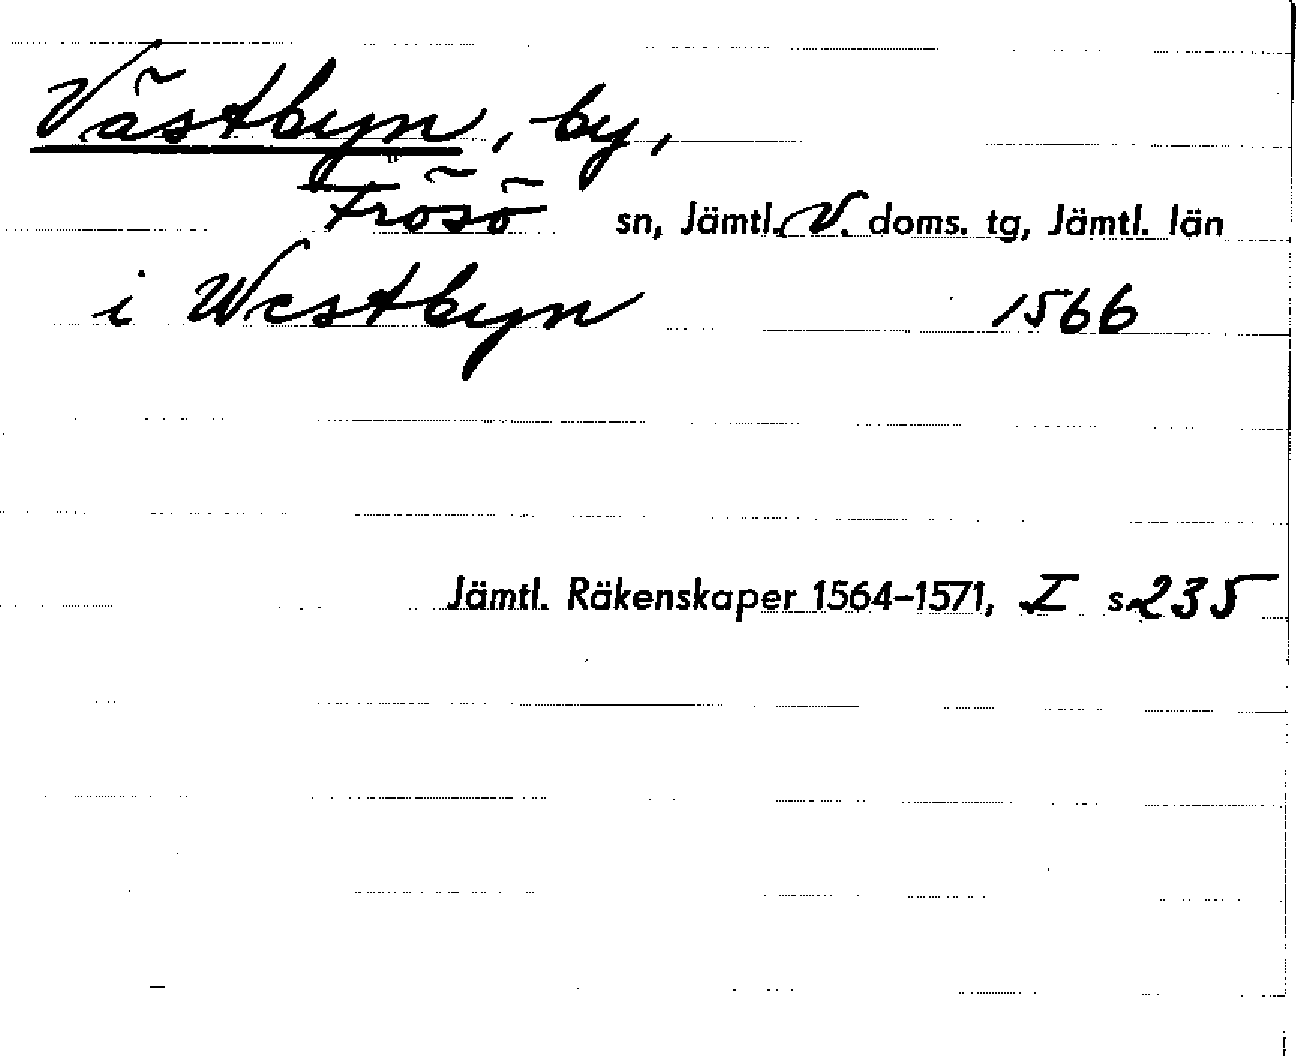 Västbyn, by,
Frösö sn, Jämtl. V. doms. tg, Jämtl. län
i Westbyn 1566
Jämtl. Räkenskaper 1564-1571, I s. 235